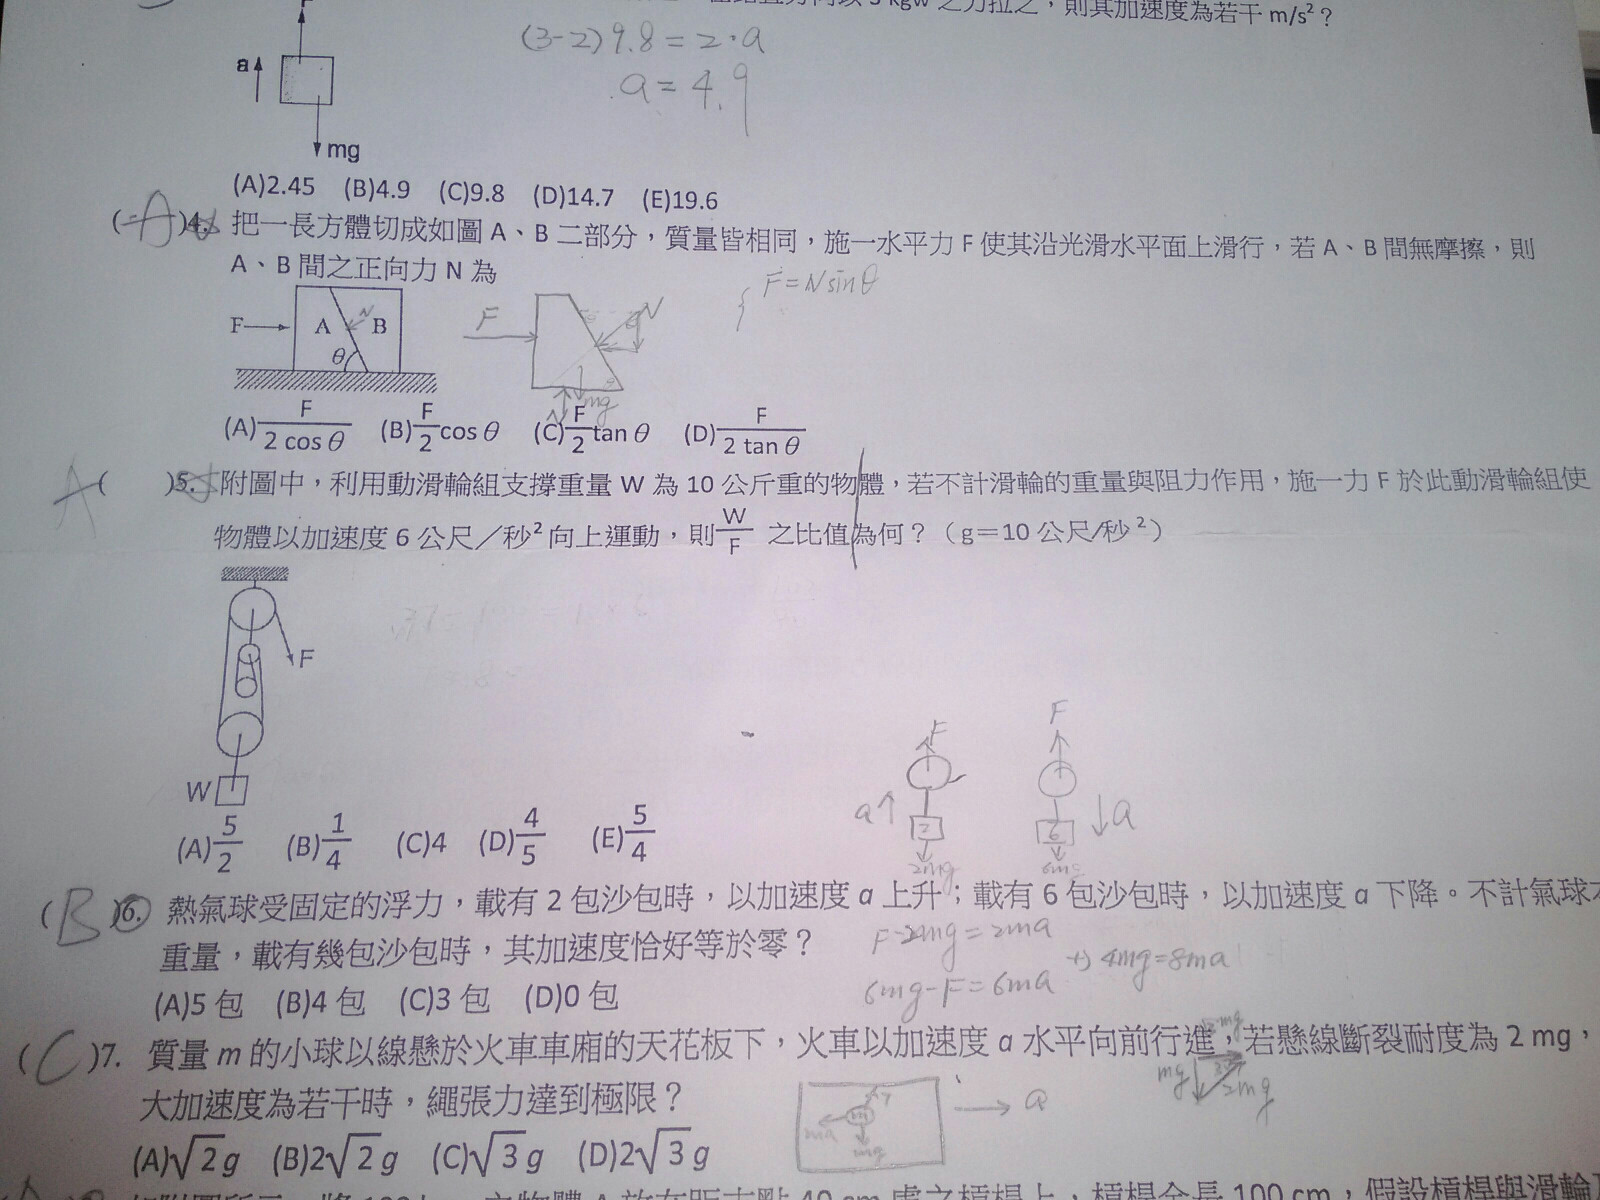 之力拉之，則其加速度為若干 m/s²？
(3-2)9.8=2·a
a=4.9
a
mg
(A)2.45 (B)4.9 (C)9.8 (D)14.7 (E)19.6
(A)4. 把一長方體切成如圖 A、B 二部分，質量皆相同，施一水平力 F 使其沿光滑水平面上滑行，若 A、B 間無摩擦，則
A、B 間之正向力 N 為
F=Nsinθ
F A N B θ
F N mg N
(A) F/2 cos θ (B) F/2 cos θ (C) F/2 tan θ (D) F/2 tan θ
A ( )5. 附圖中，利用動滑輪組支撐重量 W 為 10 公斤重的物體，若不計滑輪的重量與阻力作用，施一力 F 於此動滑輪組使
物體以加速度 6 公尺／秒² 向上運動，則 W/F 之比值為何？（g＝10 公尺/秒²）
F
W
F a 2 2mg
F a 6 6mg
(A) 5/2 (B) 1/4 (C)4 (D) 4/5 (E) 5/4
(B)6. 熱氣球受固定的浮力，載有 2 包沙包時，以加速度 a 上升；載有 6 包沙包時，以加速度 a 下降。不計氣球
重量，載有幾包沙包時，其加速度恰好等於零？
F-2mg=2ma
6mg-F=6ma
+) 4mg=8ma
(A)5 包 (B)4 包 (C)3 包 (D)0 包
(C)7. 質量 m 的小球以線懸於火車車廂的天花板下，火車以加速度 a 水平向前行進，若懸線斷裂耐度為 2 mg，
大加速度為若干時，繩張力達到極限？
mg 2mg
T ma mg a
(A)√2 g (B)2√2 g (C)√3 g (D)2√3 g